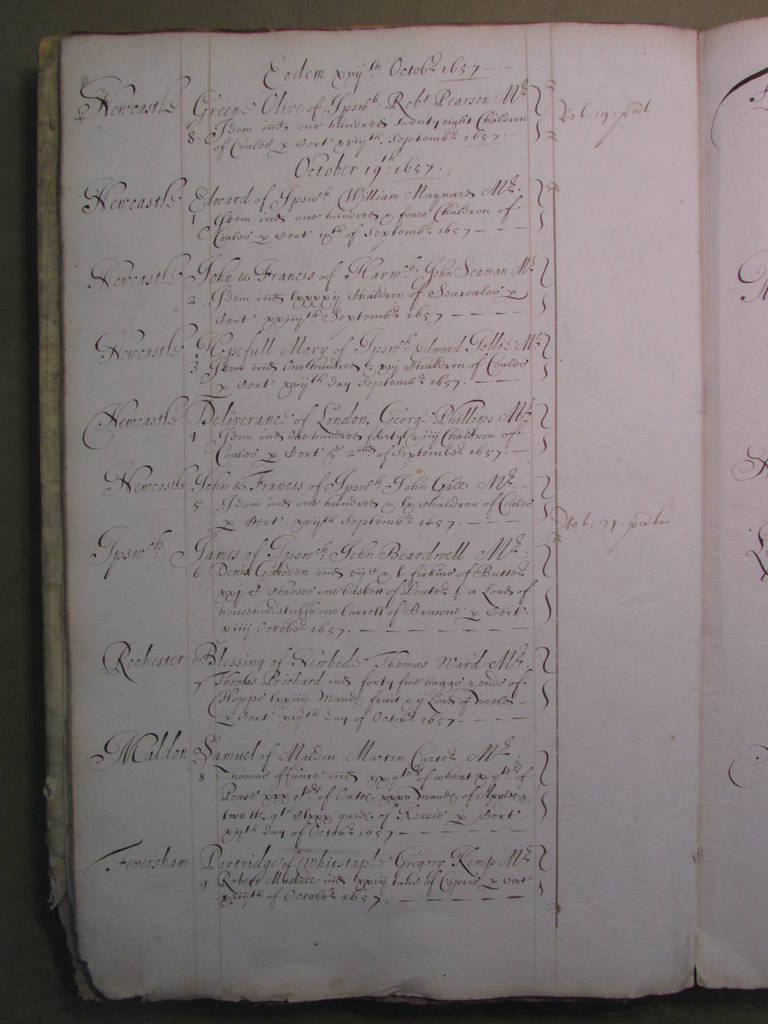 Eodem xvijth Octobr 1657
Newcastle Greene Olive of Ipswch Robt Pearson Mr
8 Idem ind one hundred twenty eight Chaldron
of Coales p Cert xviijth Septembr 1657
October 19th 1657
Newcastle Edward of Ipswch William Maynard Mr
1 Idem ind one hundred & foure Chaldron of
Coales p Cert ixth of Septembr 1657
Newcastle John & Francis of Harwch John Seaman Mr
2 Idem ind lxxxxij Chaldron of Seacoales p
Cert xxiiijth Septembr 1657
Newcastle Hopefull Mary of Ipswch Edward Mr
3 Idem ind One hundred & xvj Chaldron of Coales
p Cert xviijth day Septembr 1657
Newcastle Deliverance of London, George Phillips Mr
4 Idem ind One hundred Chaldron of
Coales p Cert 2nd of Septembr 1657
Newcastle John & Francis of Ipswch John Giles Mr
5 Idem ind one hundred & lx Chaldron of Coales
p Cert Septembr 1657
Ipswch James of Ipswch John Beardwell Mr
6 Denis ind firkins of Butter
Cheese one baskett of Pewter, a Load of
householdstuffe one barrell of Brawne p Cert
xiiij October 1657
Rochester Blessing of Thomas Ward Mr
7 Thomas Prichard ind forty five baggs & ends of
Hopps lxxiiij Maund fruit & ij Load of
p Cert day of Octobr 1657
Maldon Samuel of Maldon Martin Carter Mr
8 Thomas ind of wheat of
Pease of Oates, Maund of Apples
two yards of Kersie p Cert
day of Octobr 1657
Feversham Partridge of Whitstaple Gregory Kemp Mr
9 Robert ind of p Cert
of October 1657